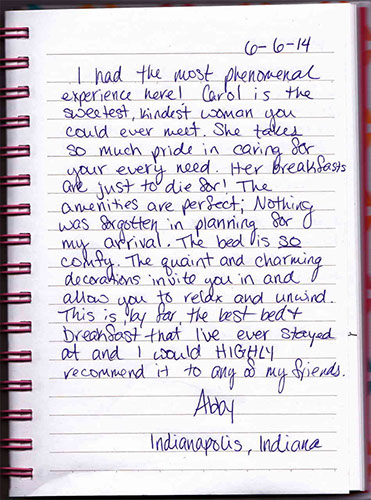 6-6-14
I had the most phenomenal
experience here! Carol is the
sweetest, kindest woman you
could ever meet. She takes
so much pride in caring for
your every need. Her breakfasts
are just to die for! The
amenities are perfect; Nothing
was forgotten in planning for
my arrival. The bed is so
comfy. The quaint and charming
decorations invite you in and
allow you to relax and unwind.
This is, by far, the best bed &
breakfast that I've ever stayed
at and I would HIGHLY
recommend it to any of my friends.
Abby
Indianapolis, Indiana